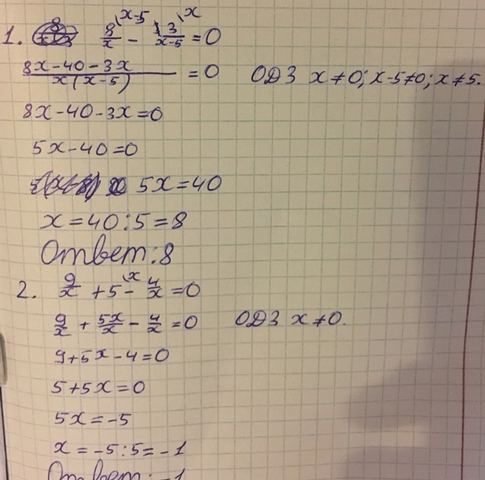 1. 8/x \x-5 - 3/x-5 \x = 0
8x-40-3x / x(x-5) = 0 ОДЗ x≠0; x-5≠0; x≠5.
8x-40-3x=0
5x-40=0
5x=40
x=40:5=8
Ответ:8
2. 9/x + 5 \x - 4/x = 0
9/x + 5x/x - 4/x = 0 ОДЗ x≠0.
9+5x-4=0
5+5x=0
5x=-5
x=-5:5=-1
Ответ: -1